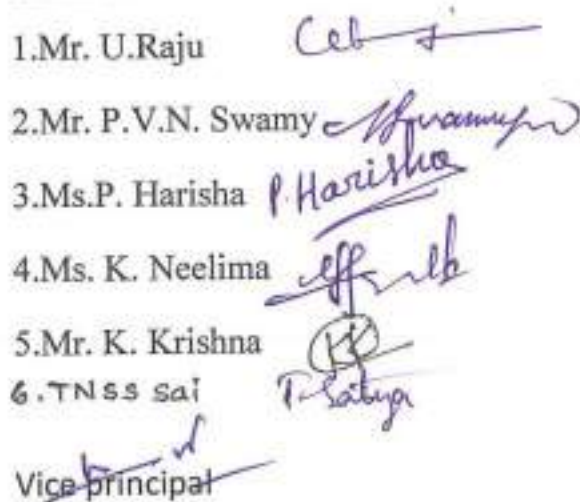 1.Mr. U.Raju
2.Mr. P.V.N. Swamy
3.Ms.P. Harisha P. Harisha
4.Ms. K. Neelima
5.Mr. K. Krishna KK
6. TNSS Sai T. Satya
Vice principal